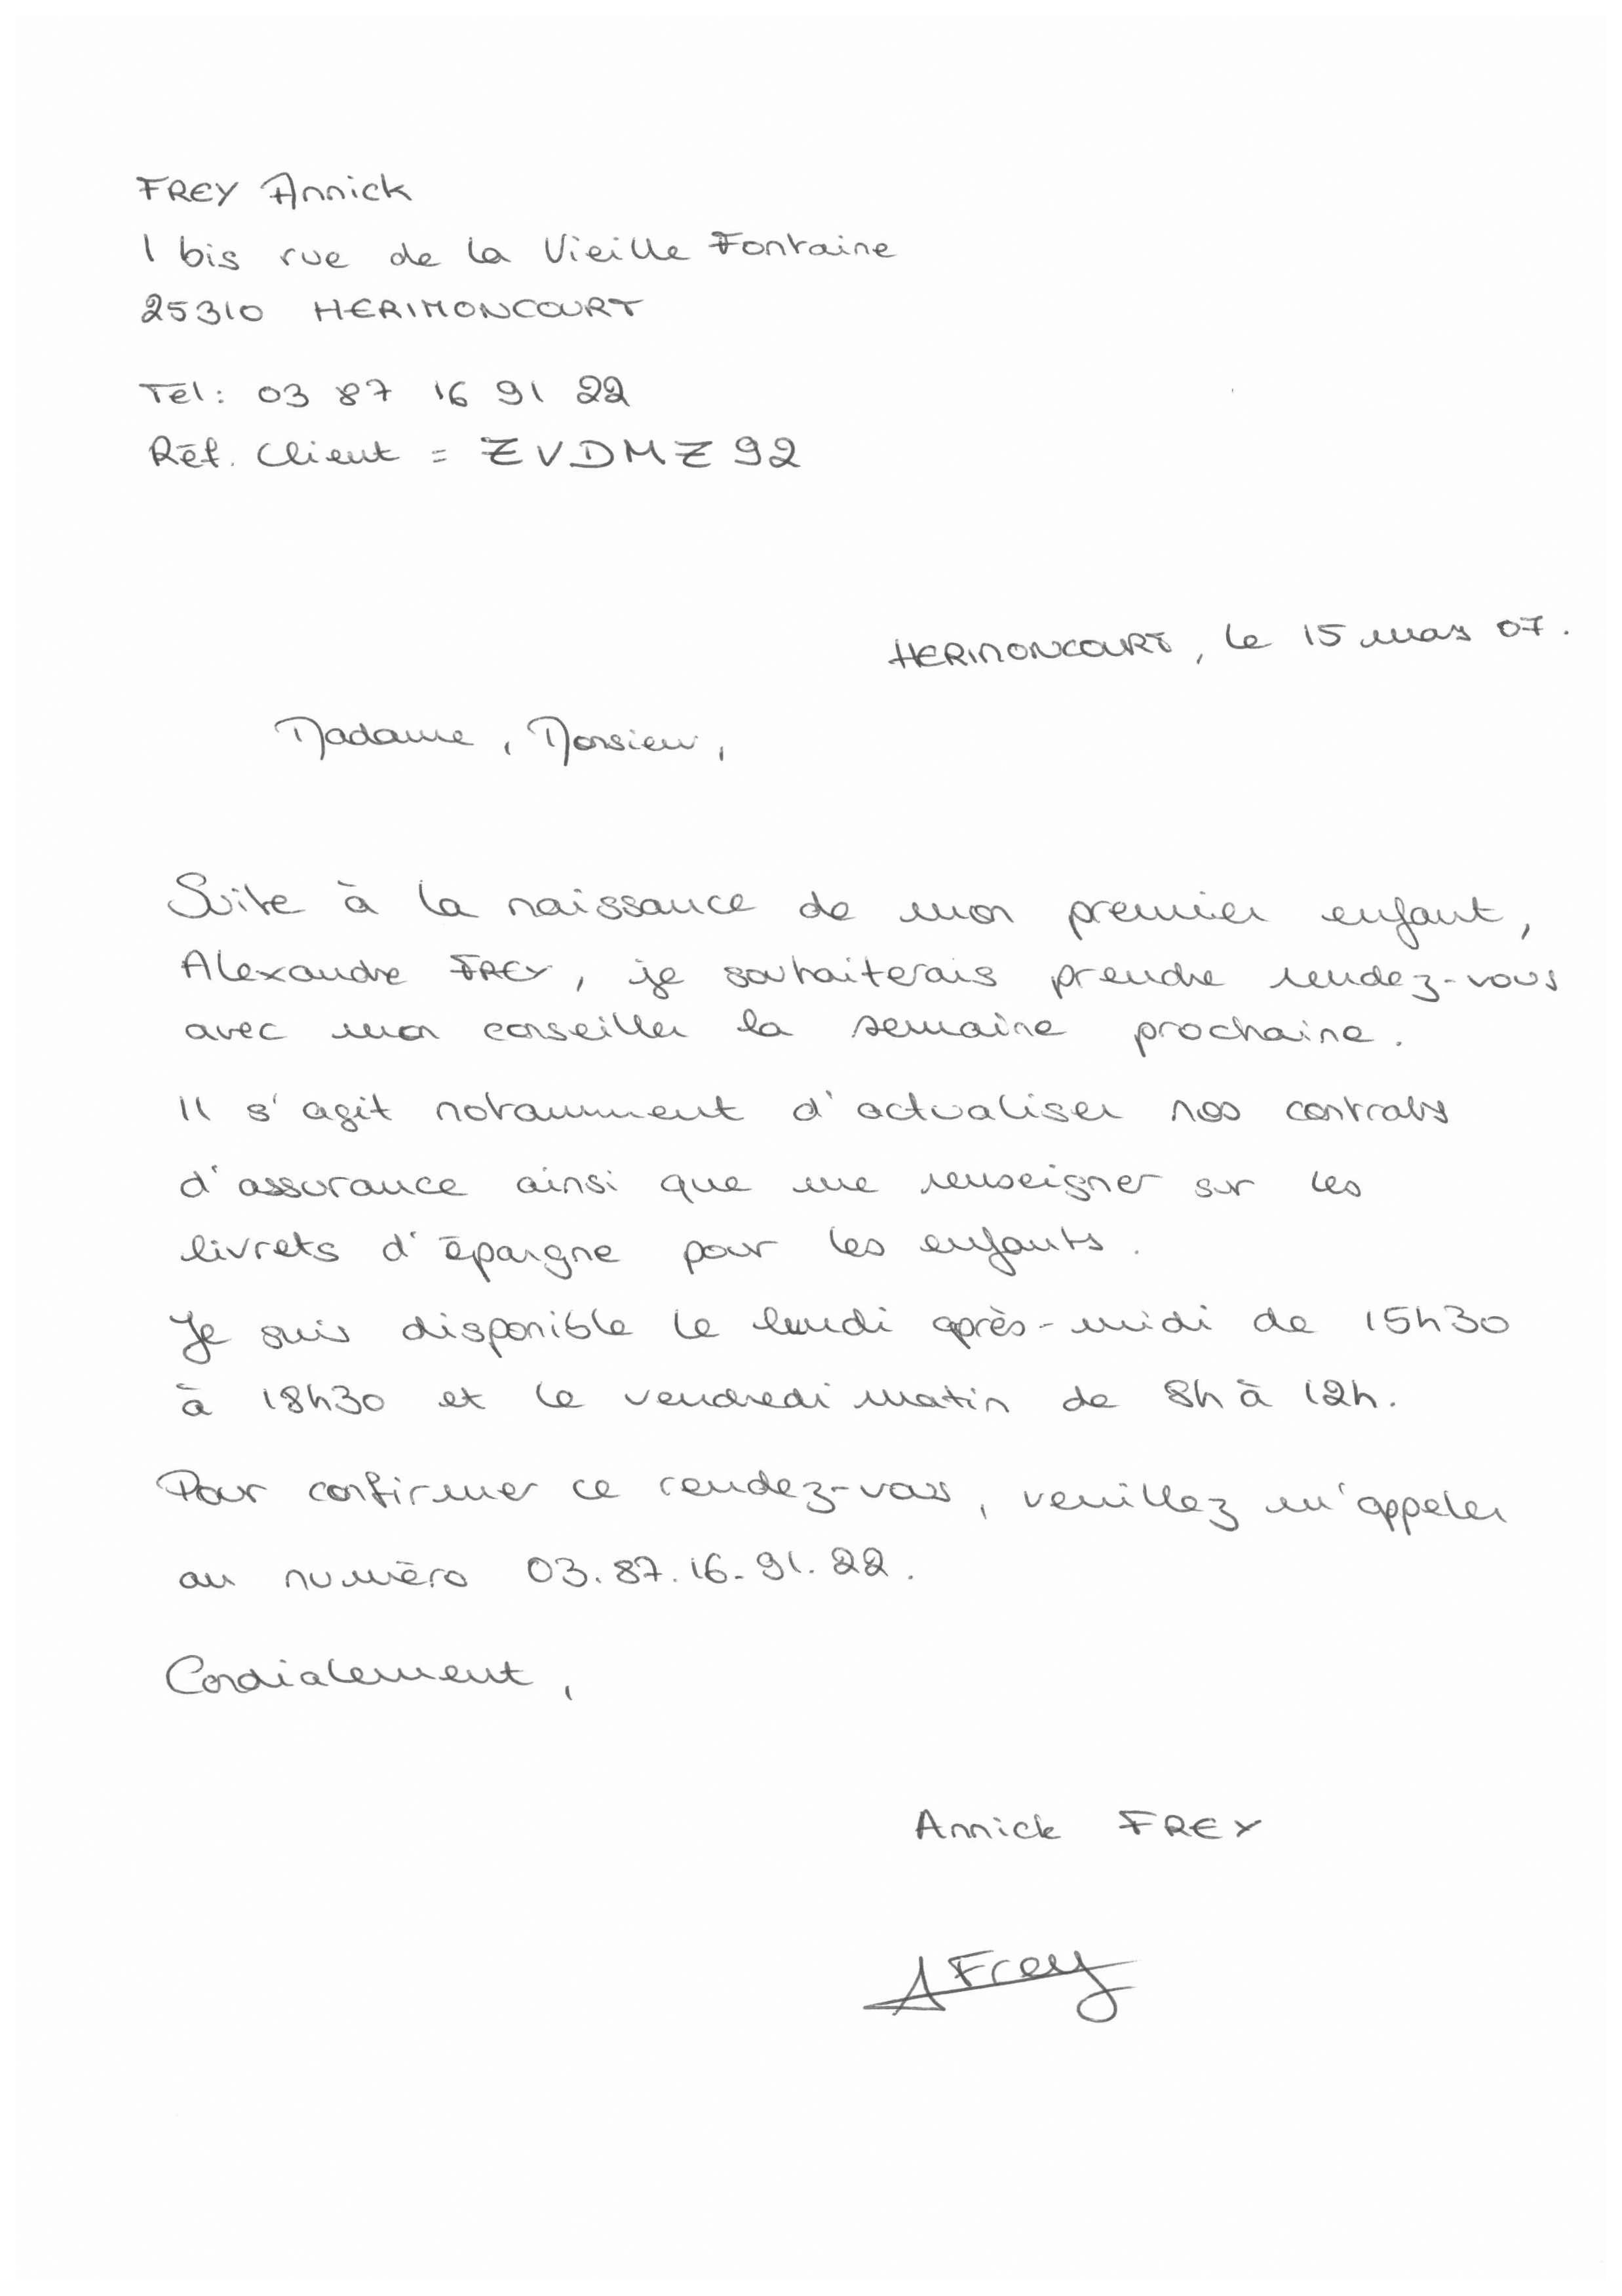 FREY Annick
1 bis rue de la Vieille Fontaine
25310 HERIMONCOURT
Tél: 03 87 16 91 22
Réf. Client = ZVDMZ92
HERIMONCOURT, le 15 mars 07.
Madame, Monsieur,
Suite à la naissance de mon premier enfant,
Alexandre FREY, je souhaiterais prendre rendez-vous
avec mon conseiller la semaine prochaine.
Il s'agit notamment d'actualiser nos contrats
d'assurance ainsi que me renseigner sur les
livrets d'épargne pour les enfants.
Je suis disponible le lundi après-midi de 15h30
à 18h30 et le vendredi matin de 8h à 12h.
Pour confirmer ce rendez-vous, veuillez m'appeler
au numéro 03.87.16.91.22.
Cordialement,
Annick FREY
A Frey